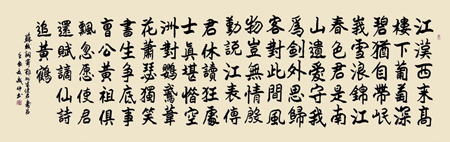 江漢西來高
樓下葡萄深
碧猶自帶岷
峩雪浪錦江
春色君是南
山遺愛守我
為劍外思歸
客對此間風
物豈無情殷
勤説江表傳
君休讀狂處
士真堪惜空
洲對鸚鵡葦
花蕭瑟獨笑
書生爭底事
曹公黃祖俱
飄忽愿使君
還賦謫仙詩
追黃鶴